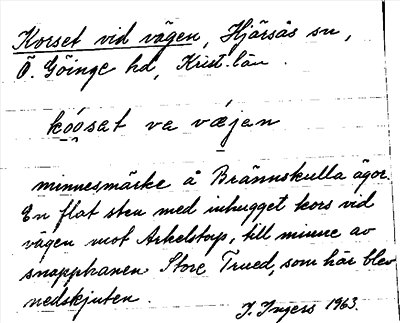 Korset vid vägen, Hjärsås sn,
Ö. Göinge hd, Krist. län.
kóosat va væjan
minnesmärke å Brännskulla ägor.
En flat sten med inhugget kors vid
vägen mot Arkelstorp, till minne av
snapphanen Store Trued, som här blev
nedskjuten.
J. Ingers 1963.